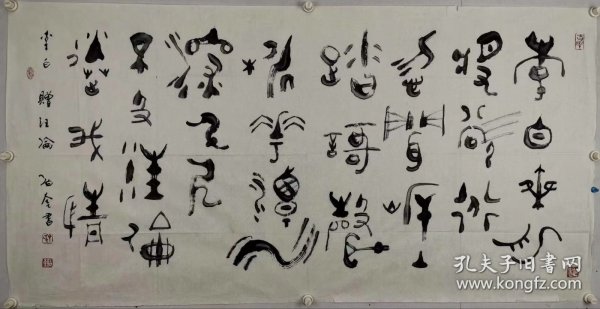 李白乘舟
將欲行
忽聞岸上
踏謌聲
桃花潭水
深千尺
不及汪倫
送我情
李白 贈汪倫 書
孔夫子旧书网
www.kongfz.com